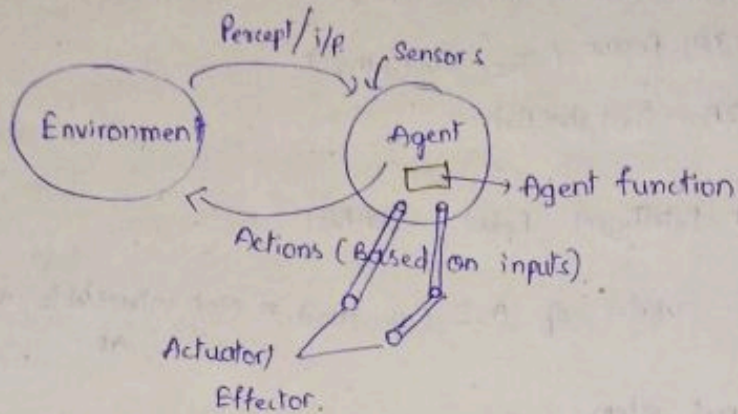 Percept/i/p.
Sensors
Environment
Agent
Agent function
Actions (Based on inputs)
Actuator/
Effector.